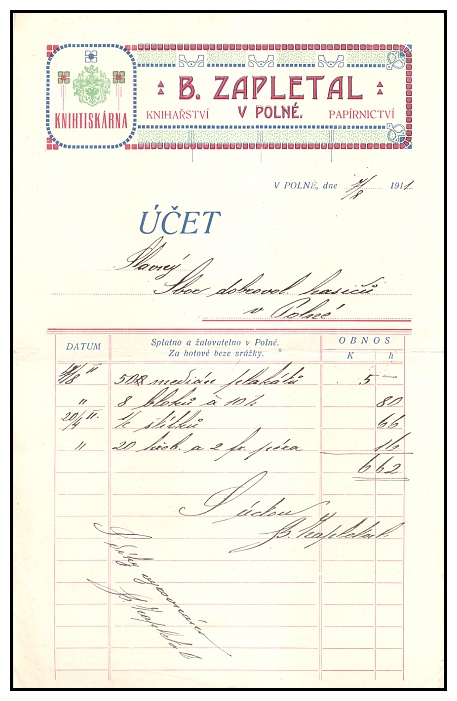 KNIHTISKÁRNA
B. ZAPLETAL
KNIHAŘSTVÍ V POLNÉ. PAPÍRNICTVÍ
V POLNÉ, dne 7/8 1911
ÚČET
Slavný
Sbor dobrovol. hasičů
v Polné
DATUM Splatno a žalovatelno v Polné. OBNOS
Za hotové beze srážky. K h
50 medián plakátů 5 —
" 8 bloků à 10 h 80
20/4 11. štítků 66
" 20 a 2 péra 16
6 62
S úctou
B. Zapletal
S díky vyrovnáno
B. Zapletal